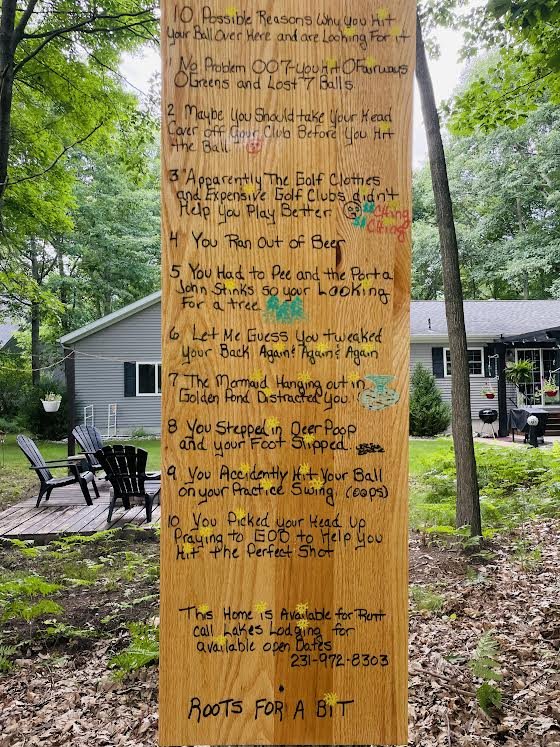 10 Possible Reasons Why you Hit
your Ball Over Here and are Looking For it
1 No Problem 007-you Hit 0 Fairways
0 Greens and Lost 7 Balls
2 Maybe you Should take Your Head
Cover off Your Club Before You Hit
the Ball
3 Apparently The Golf Clothes
and Expensive Golf Clubs didn't
Help you Play Better
Ching
Ching
4 You Ran Out of Beer
5 You Had to Pee and the Porta
John Stinks so your Looking
For a tree
6 Let Me Guess you Tweaked
your Back Again? Again? Again
7 The Mermaid Hanging out in
Golden Pond Distracted you.
8 You Stepped in Deer Poop
and your Foot Slipped
9 You Accidently Hit Your Ball
on your Practice Swing (oops)
10 You Picked your Head Up
Praying to GOD to Help You
Hit the Perfect Shot
This Home is Available for Rent
call Lakes Lodging for
available open Dates
231-972-8303
ROOTS FOR A BIT